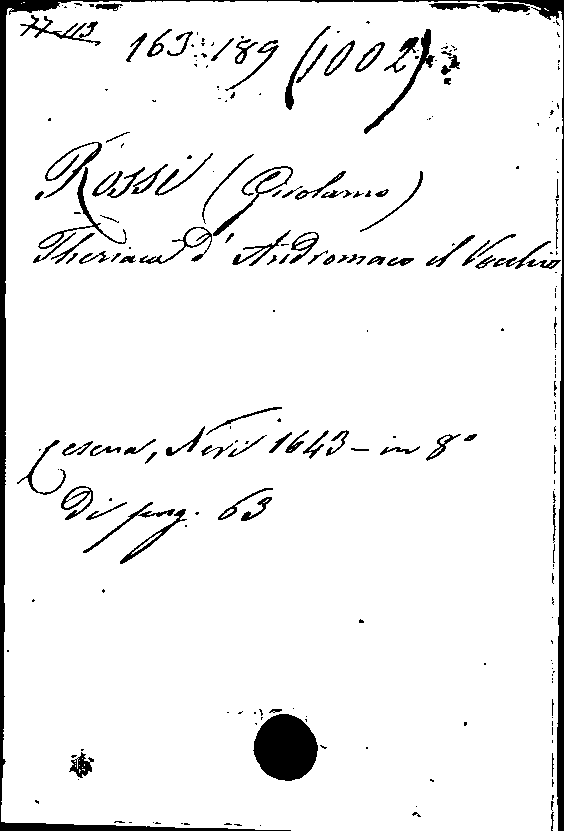 77-113
163-189 (1002)
Rossi (Girolamo)
Theriaca d' Andromaco il Vecchio
Cesena, Neri 1643 - in 8°
Di pag. 63